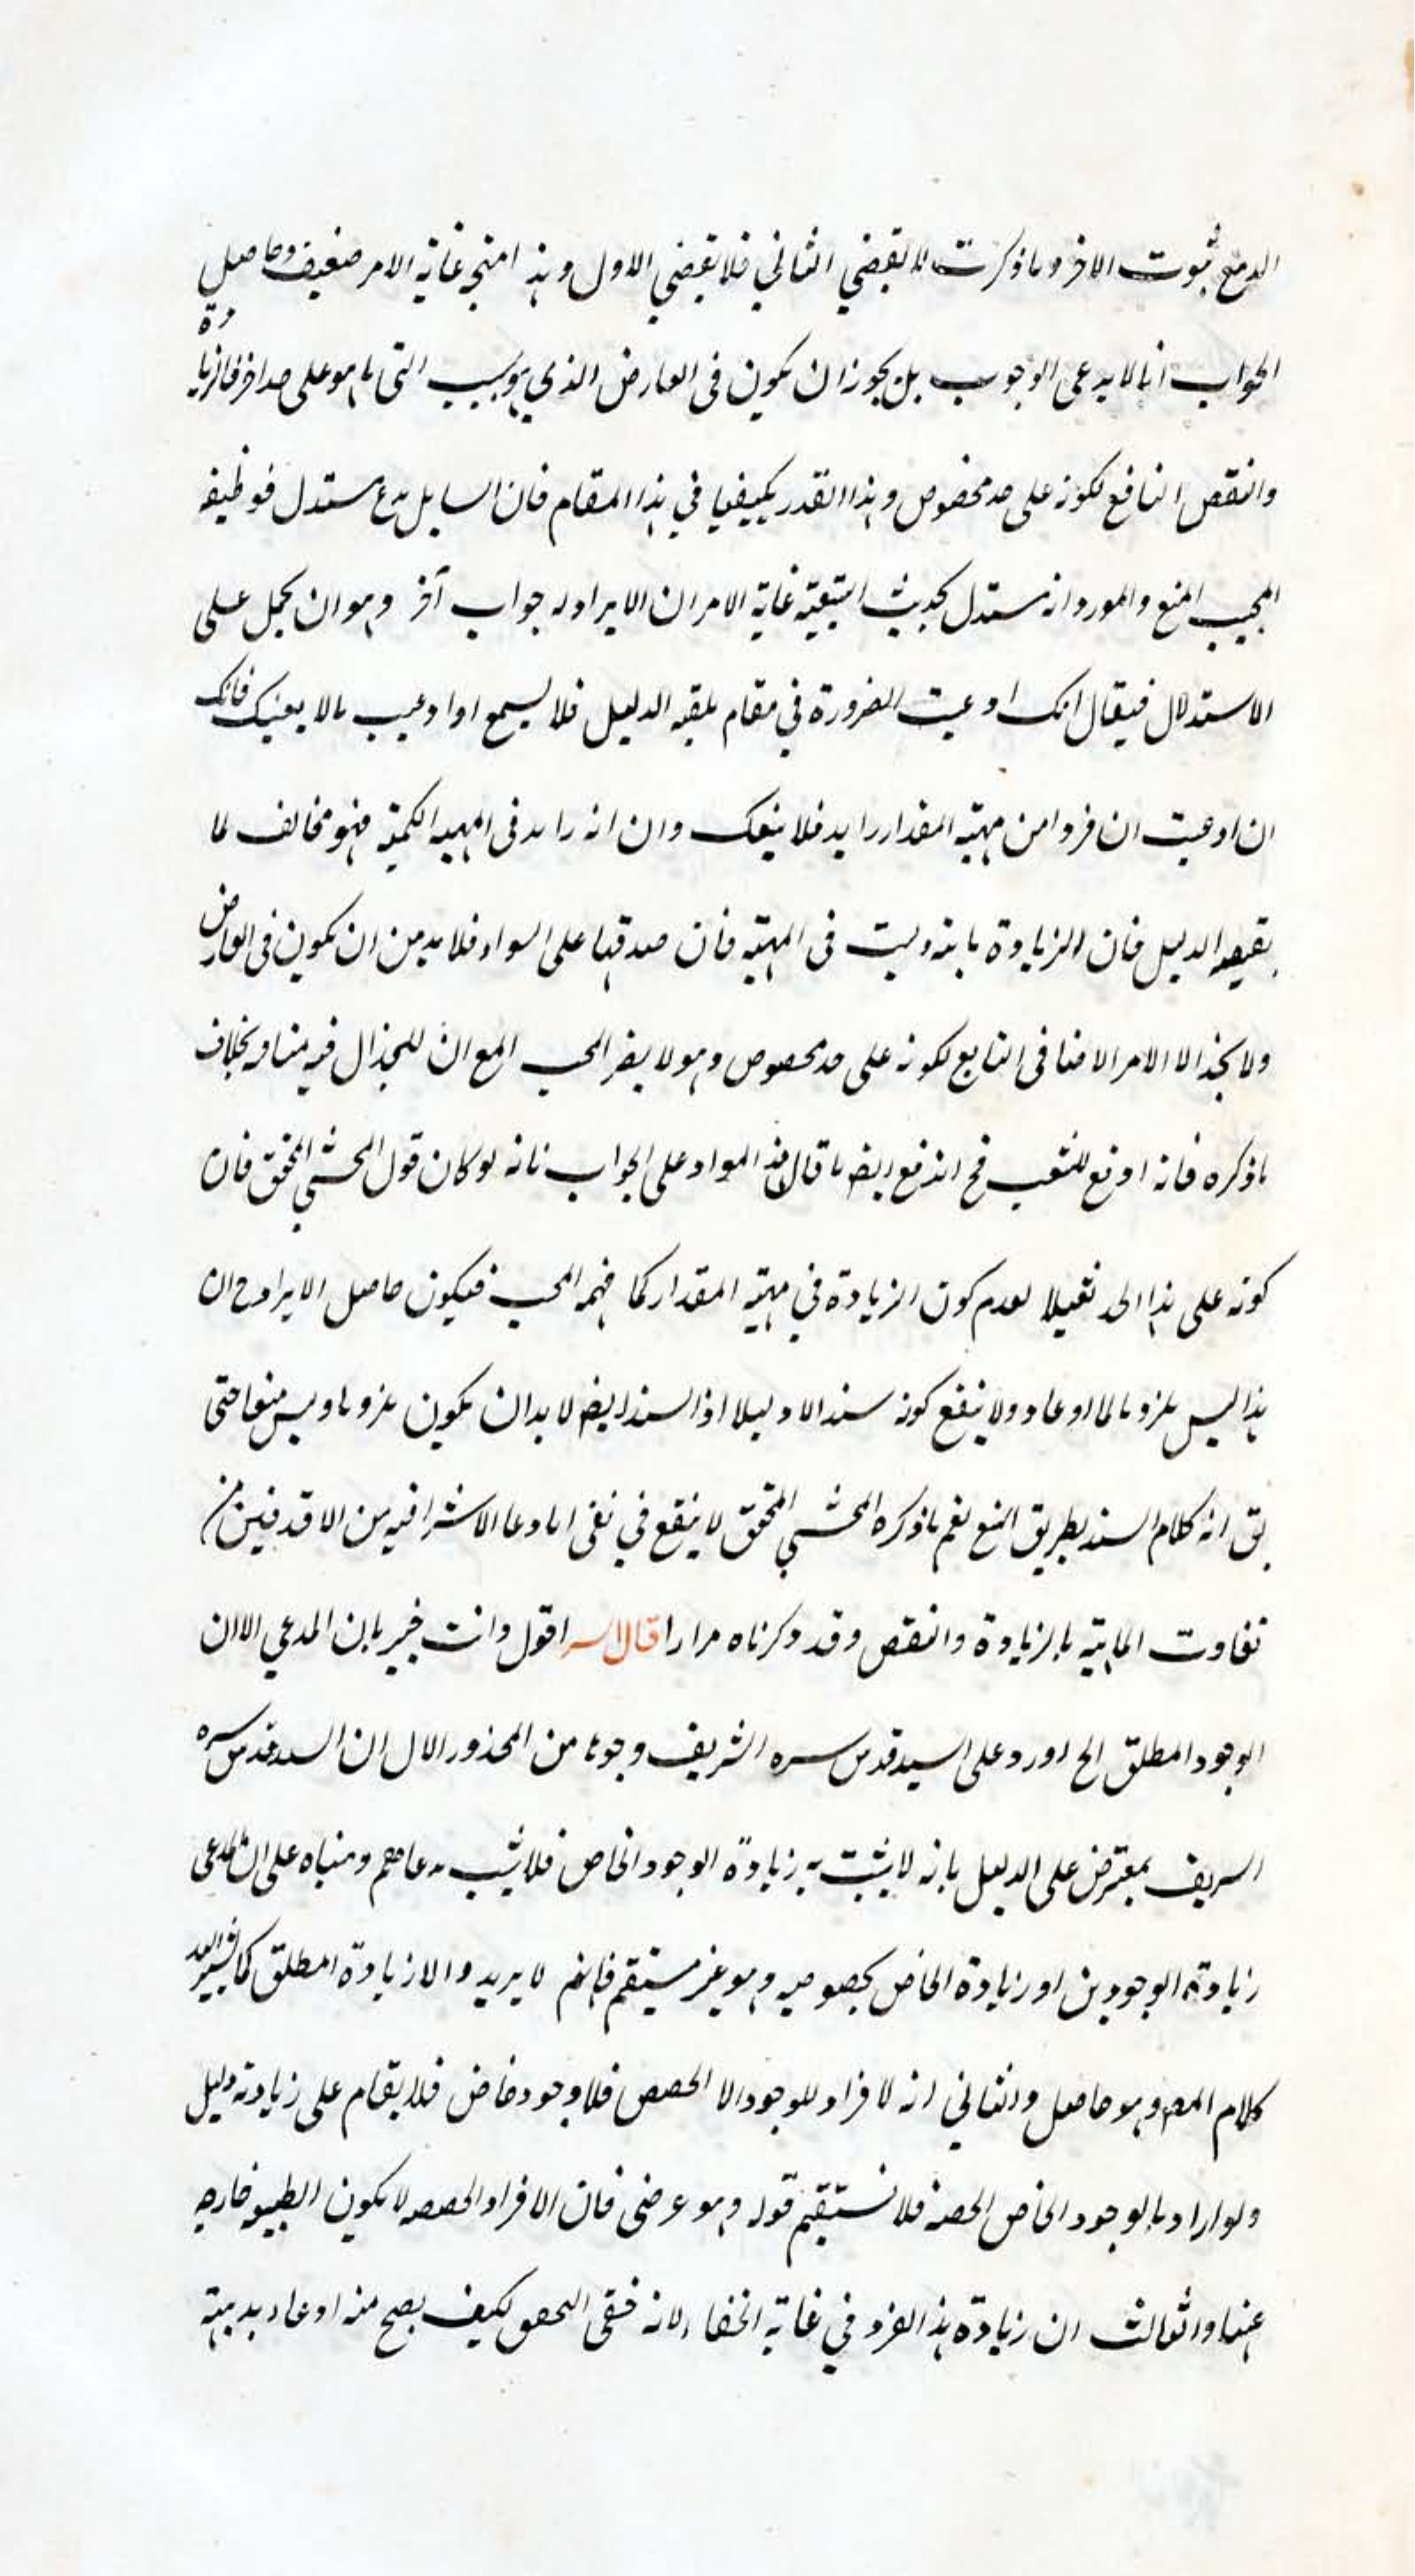 الا مع ثبوت الاخر وما ذكرت لا يقتضي الثاني فلا يقتضي الاول وهذا منج غاية الامر ضعيف وحاصل
الجواب انا لا ندعى الوجوب بل يجوز ان يكون فى العارض الذي بسبب التى ما هو على حد اخر فالزيادة
والنقص التابع لكونه على حد مخصوص وهذا القدر يكفينا في هذا المقام فان السايل مدع مستدل فوظيفة
المجيب المنع والمورد انه مستدل بحديث التبعية غاية الامر ان الايراد له جواب آخر وهو ان يحمل على
الاستدلال فيقال انك ادعيت الضرورة في مقام يلقبه الدليل فلا يسمع او ادعيت ما لا يعنيك فانك
ان ادعيت ان فردا من مهية المقدار زايد فلا ينفعك وان انه زايد فى المهية الكمية فهو مخالف لما
يقتضيه الدليل فان الزيادة ثابتة وليست فى المهية فان صدقها على السواد فلا بد من ان يكون فى العارض
ولا يخذ الا الامر الاضافى التابع لكونه على حد مخصوص وهو لا يضر المجيب مع ان للجدال فيه مناو بخلاف
ما ذكره فانه ادفع للشغب فح اندفع ايضا ما قال هذا المواد على الجواب بانه لو كان قول المحشي المحقق فان
كونه على هذا الحد تعليلا لعدم كون الزيادة في مهية المقدار كما فهمه المجيب فيكون حاصل الايراد ح ان
هذا ليس ملزوما لما ادعاه ولا ينفع كونه سندا لا دليلا اذ السند ايضا لا بد ان يكون ملزوما وليس منعا حتى
يق انه كلام السند بطريق المنع نعم ما ذكره المحشي المحقق لا ينفع في نفى ما ادعا الاشراقية من الاقدمين من
تفاوت الماهية بالزيادة والنقص وقد ذكرناه مرارا قال الاسـ اقول وانت خبير بان المدعي الا ان
الوجود المطلق الخ اورد على السيد قدس سره الشريف وجوها من المحذور الاول ان السيد قدس سره
الشريف يعترض على الدليل بانه لا يثبت به زيادة الوجود الخاص فلا يثبت مدعاهم ومبناه على ان المدعى
زيادة الوجودين او زيادة الخاص بخصوصه وهو غير مستقيم فانهم لا يريدوا الا زيادة المطلق كما يشير اليه
كلام المصـ وهو حاصل والثاني انه لا فراد للوجود الا الحصص فلا وجود خاص فلا يقام على زيادته دليل
ولو اراد بالوجود الخاص الحصة فلا تستقيم قوله وهو عرضى فان الافراد الحصصه لا يكون الطبيعه خارجه
عنها والثالث ان زيادة هذا الفرد في غاية الخفا لانه فقى التحقق فكيف يصح منه ادعاء بديهية